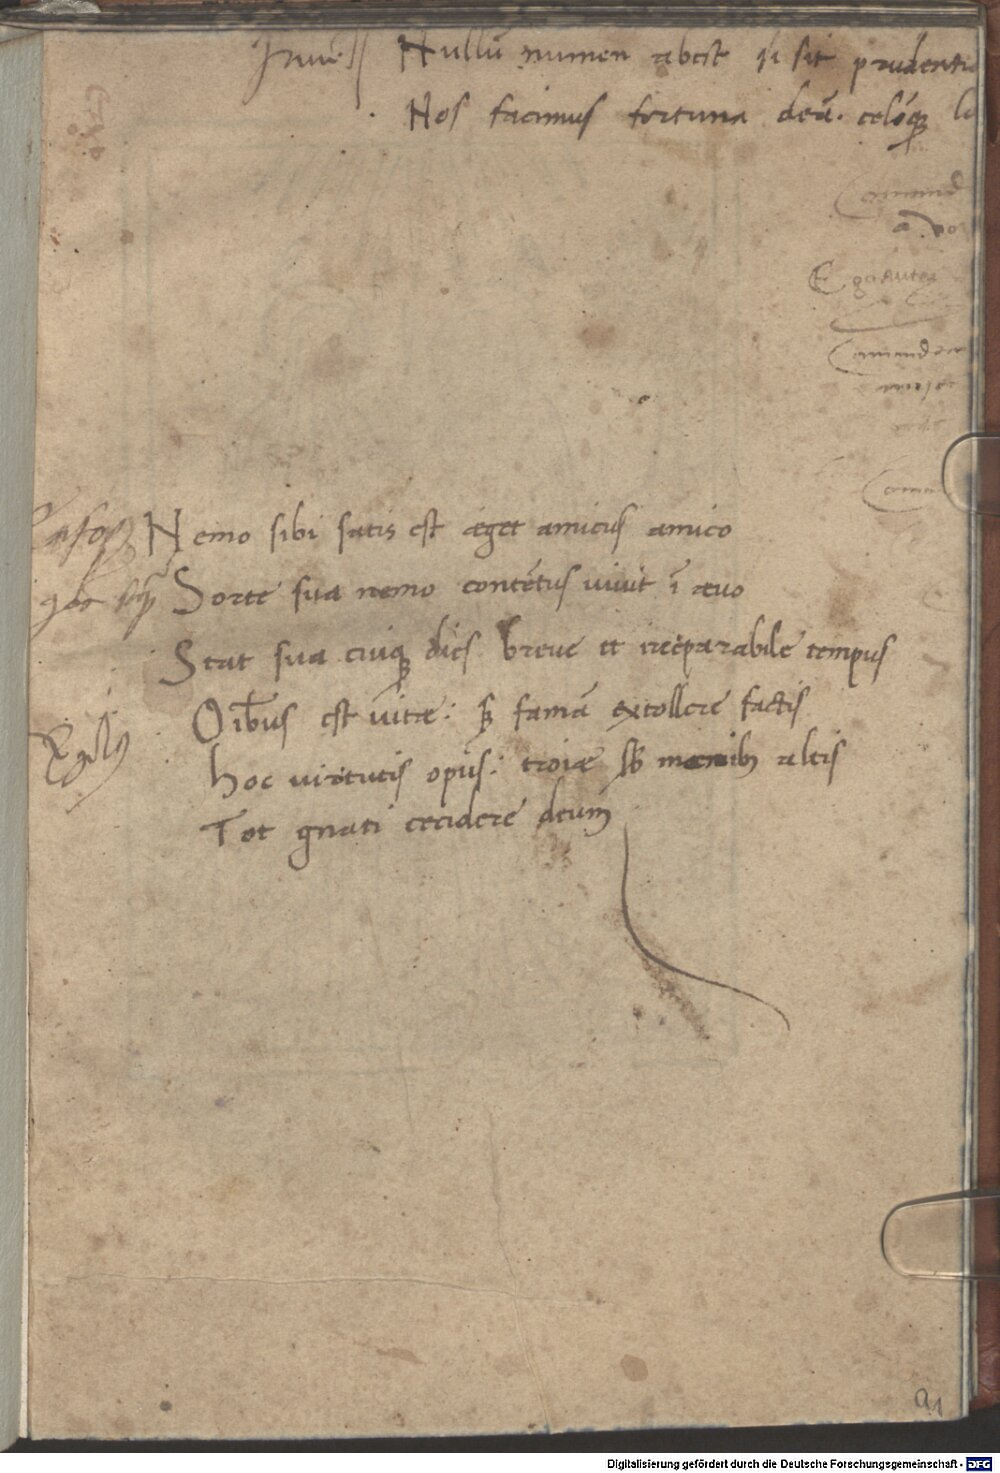 Iuve͞ || Nullū numen abest si sit prudentia
Nos facimus fortuna deā. celoq̄
Comand
a vo
Ego autem
Comandeo
Nemo sibi satis est æget amicus amico
Sorte sua nemo contētus vivit ī ævo
Stat sua cuiq̄ dies breve et ireparabile tempus
Oībus est vitæ: sꝫ famā extollere factis
Virgilꝰ
hoc virtutis opus: troiæ sb mœnibꝫ altis
Tot gnati cecidere deum
a1
Digitalisierung gefördert durch die Deutsche Forschungsgemeinschaft - DFG